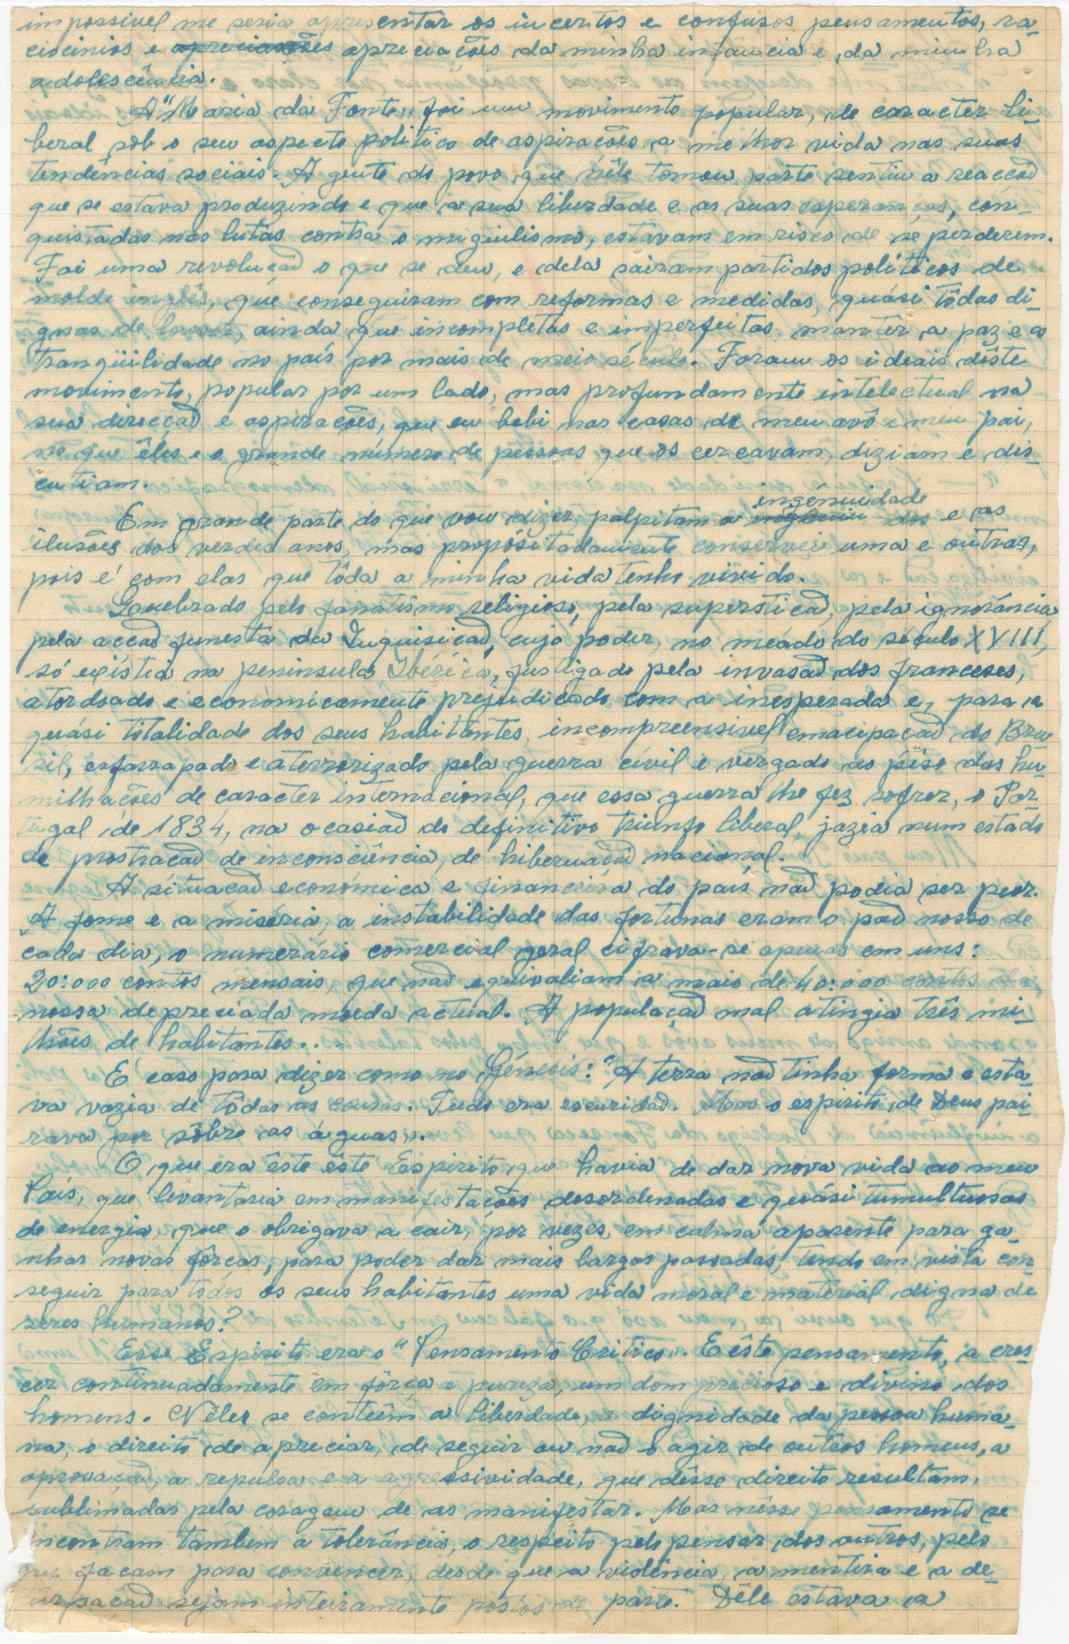 impossivel me seria apresentar os incertos e confusos pensamentos, ra-
ciocinios e apreciações apreciações da minha infancia e da minha
adolescência.
A "Maria da Fonte" foi um movimento popular, de caracter li-
beral sob o seu aspecto politico de aspirações a melhor vida nas suas
tendências sociais. A gente do povo que nêle tomou parte sentiu a reacção
que se estava produzindo e que a sua liberdade e as suas esperanças, con-
quistadas nas lutas contra o miguelismo, estavam em risco de se perderem.
Foi uma revolução o que se deu, e dela sairam partidos políticos de
molde inglês, que conseguiram com reformas e medidas, quási tôdas di-
gnas de louvor, ainda que incompletas e imperfeitas manter a paz e a
tranqüilidade no país por mais de meio século. Foram os ideais dêste
movimento, popular por um lado, mas profundamente intelectual na
sua direcção e aspirações, que eu bebi nas casas de meu avô e meu pai,
no que êles e o grande número de pessoas que os cercavam, diziam e dis-
cutiam.
ingénuidade
Em grande parte do que vou dizer, palpitam a e as
ilusões dos verdes anos, mas propositadamente conservei uma e outras,
pois é com elas que tôda a minha vida tenho vivido.
Quebrado pelo fanatismo religioso, pela superstição, pela ignorância
pela acção funesta da Inquisição, cujo poder, no meado do século XVIII,
só existia na peninsula Ibérica, fustigado pela invasão dos franceses,
atordoado e económicamente prejudicado com a inesperada e, para a
quási totalidade dos seus habitantes, incompreensivel emacipação do Bra-
sil, esfarrapado e aterrorizado pela guerra civil e vergado ao pêso das hu-
milhações de caracter internacional, que essa guerra lhe fez sofrer, o Por-
tugal de 1834, na ocasião do definitivo triunfo liberal, jazia num estado
de prostração de inconsciência, de hibernação nacional.
A situação económica e financeira do país não podia ser peor.
A fome e a miséria, a instabilidade das fortunas eram o pão nosso de
cada dia, o numerário comercial geral cifrava-se apenas em uns:
20:000 contos mensais, que não equivaliam a mais de 40:000 contos da
nossa depreciada moeda actual. A população mal atingia três mi-
lhões de habitantes..
É caso para dizer como no Génesis: "A terra não tinha forma e esta-
va vazia de tôdas as cousas. Tudo era escuridão. Mas o espirito de Deus pai-
rava por sôbre as águas".
O que era êste êste Espirito que havia de dar nova vida ao meu
País, que levantaria em manifestações desordenadas e quási tumultuosas
de energia que o obrigava a cair, por vezes, em calma aparente para ga-
nhar novas fôrças, para poder dar mais largas passadas, tendo em vista con-
seguir para todos os seus habitantes uma vida moral e material digna de
seres humanos?
Esse Espirito era o "Pensamento Critico". E êste pensamento, a cres-
cer continuadamente em fôrça e pureza, um dom precioso e divino dos
homens. Nêles se contêm a liberdade, a dignidade da pessoa huma-
na, o direito de apreciar, de seguir ou não o agir de outros homens, a
aprovação, a repulsa e a agressividade, que dêsse direito resultam,
sublimadas pela coragem de as manifestar. Mas nêsse pensamento se
encontram tambem a tolerância, o respeito pelo pensar dos outros, pelo
que façam para convencer, desde que a violência, a mentira e a de-
turpação sejam inteiramente postos de parte. Dêle estava a